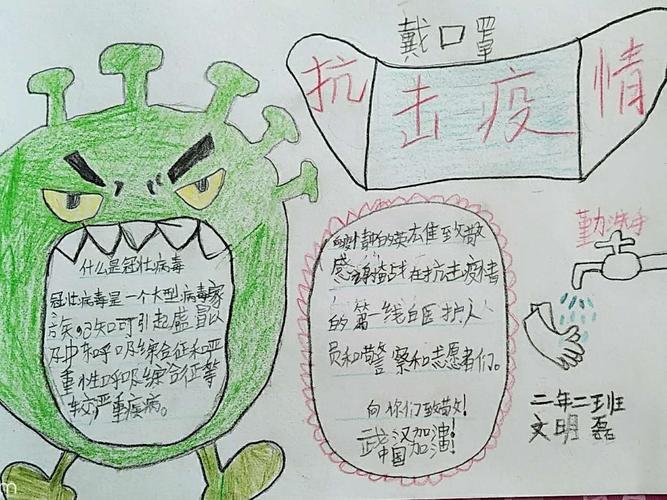 戴口罩
抗击疫情
什么是冠壮病毒
冠壮病毒是一个大型病毒家
族。已知可引起感冒以
及中和呼吸综合征和严
重性呼吸综合征等
较严重疾病。
的英雄致敬
感 战在抗击疫情
的第一线白医护人
员和警察和志愿者们。
向你们致敬!
武汉加油!
中国加油!
勤洗手
二年二班
文明磊